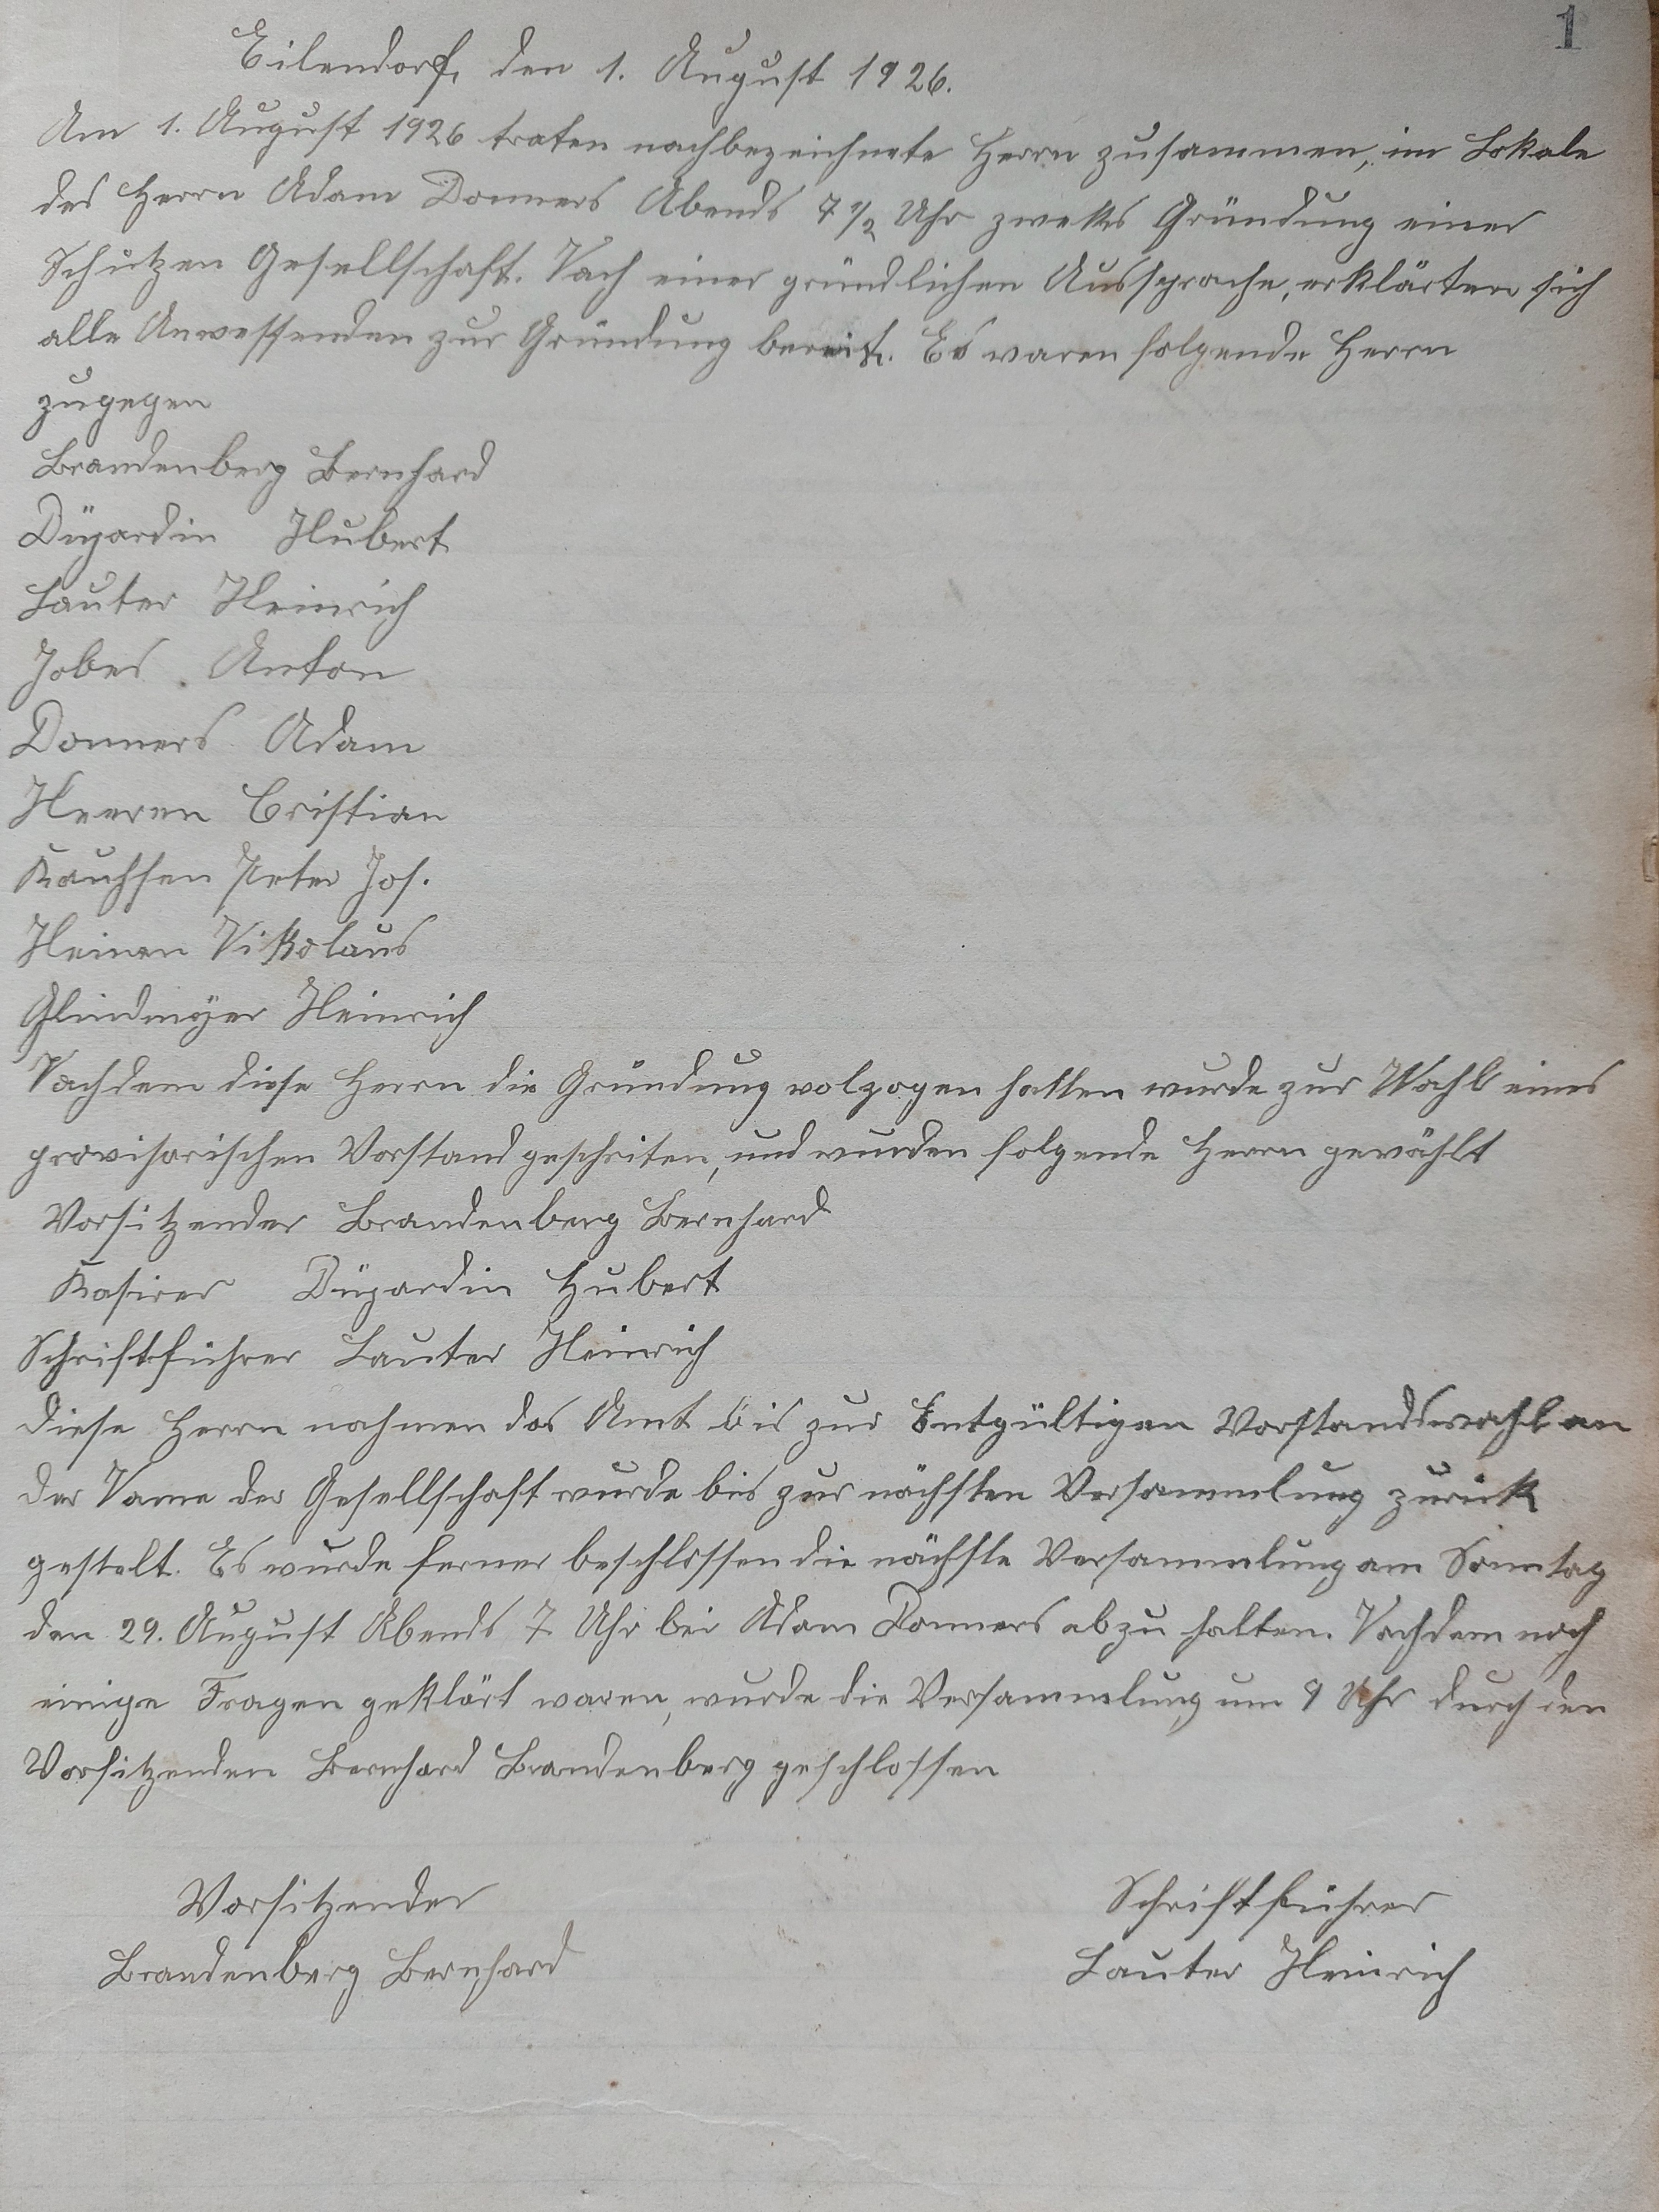 1
Eilendorf, den 1. August 1926.
Am 1. August 1926 traten nachbezeichnete Herrn zusammen, im Lokale
des Herrn Adam Donners Abends 7 1/2 Uhr zweks Gründung einer
Schutzen Gesellschaft. Nach einer gründlichen Aussprache, erklärten sich
alle Anwessenden zur Gründung bereit. Es waren folgende Herrn
zugegen
Brandenberg Bernhard
Düjardin Hubert
Lauter Heinrich
Jobes Anton
Donners Adam
Heeren Cristian
Kauhsen Peter Jos.
Heinen Nikolaus
Glindmÿer Heinrich
Nachdem diese Herrn die Gründung volzogen hatten wurde zur Wahl eines
provisorischen Vorstand geschriten, und wurden folgende Herrn gewählt
Vorsitzender Brandenberg Bernhard
Kasirer Düjardin Hubert
Schriftführer Lauter Heinrich
Diese Herrn nahmen das Amt bis zur Entgültigen Vorstandswahl an
Der Name der Gesellschaft wurde bis zur nächsten Versammlung zurük
gestelt. Es wurde ferner beschlossen die nächste Versammlung am Sonntag
den 29. August Abends 7 Uhr bei Adam Donners abzu halten. Nachdem noch
einige Fragen geklärt waren, wurde die Versammlung um 9 Uhr durch den
Vorsitzenden Bernhard Brandenberg geschlossen
Vorsitzender
Schriftführer
Brandenberg Bernhard
Lauter Heinrich